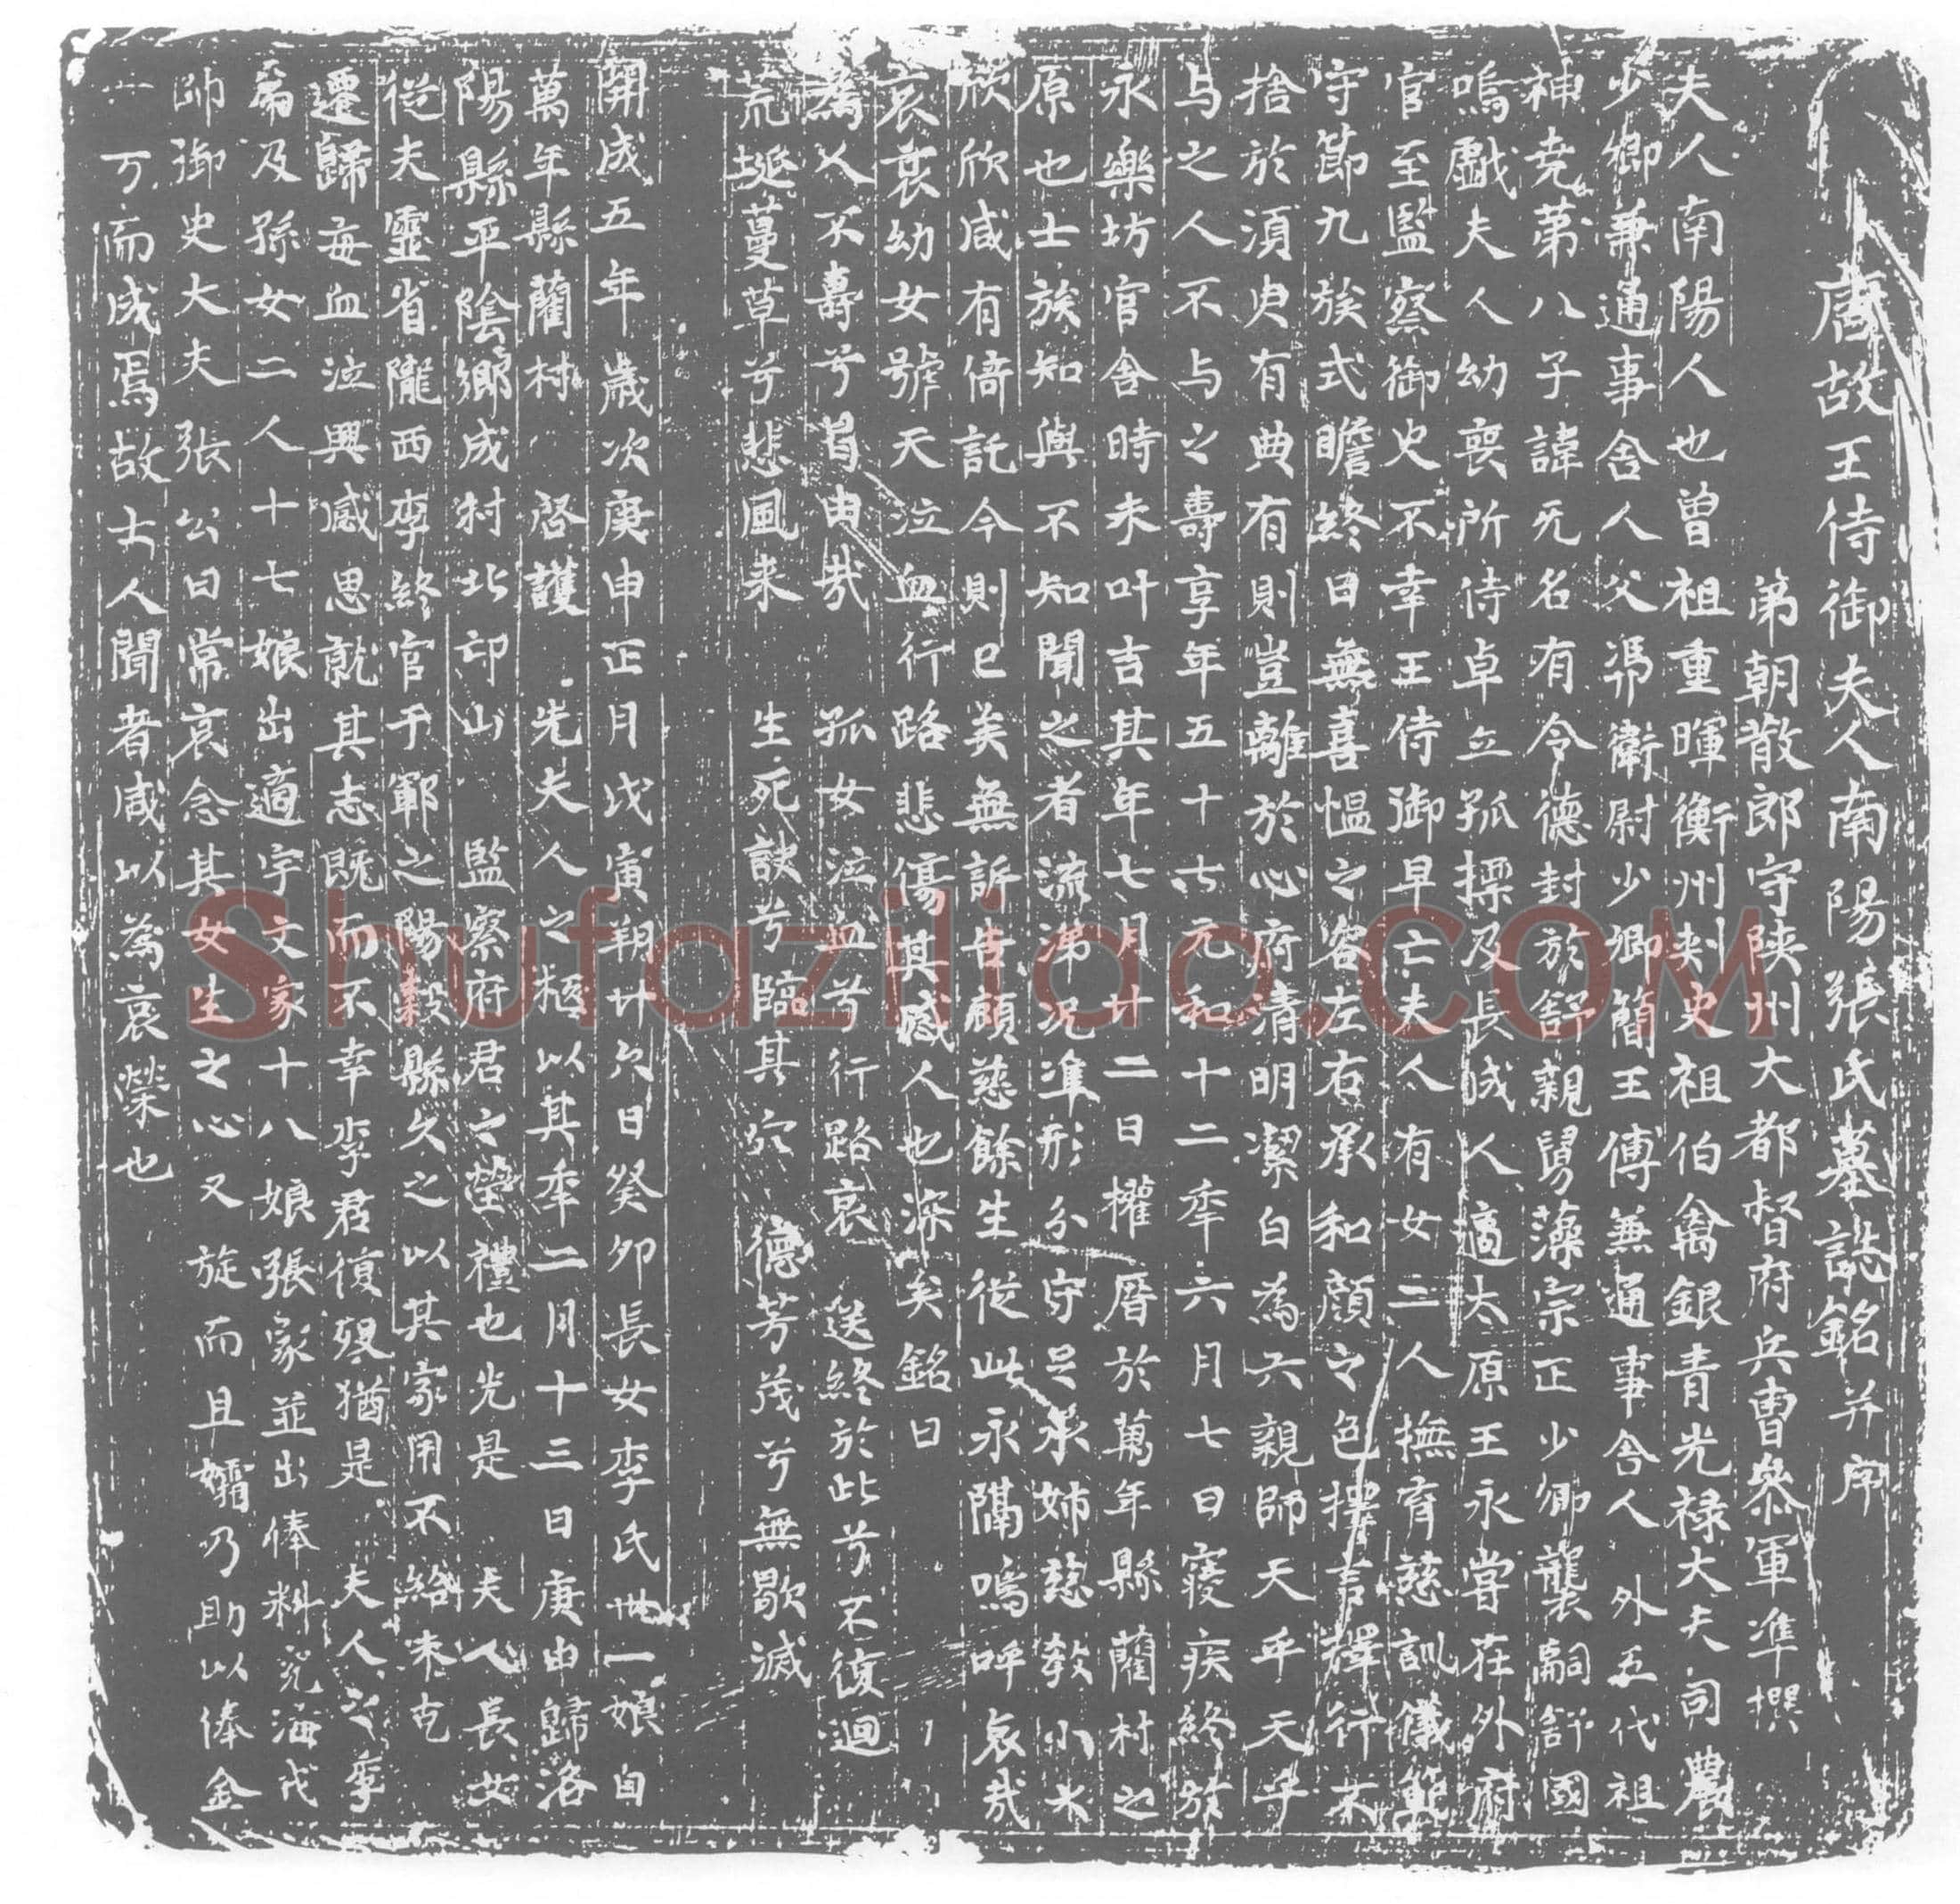 唐故王侍御夫人南陽張氏墓誌銘并序
弟朝散郎守陝州大都督府兵曹叅軍準撰
夫人南陽人也曾祖重暉衡州刾史祖伯禽銀青光禄大夫司農
少卿兼通事舍人父馮衛尉少卿簡王傅兼通事舍人外五代祖
神堯苐八子諱元名有令德封於舒親舅藻宗正少卿襲嗣舒國
嗚戲夫人幼喪所侍卓立孤摽及長成人適太原王永嘗在外府
官至監察御史不幸王侍御早亡夫人有女二人撫育慈訓儀範
守節九族式瞻終日無喜愠之容左右承和顔之色擇言擇行不
捨於湏臾有典有則豈離於心府清明潔白為六親師天乎天乎
与之人不与之壽享年五十七元和十二年六月七日寑疾終於
永樂坊官舍時未叶吉其年七月廿二日權厝於萬年縣藺村之
原也士族知與不知聞之者流涕况準形分守官承姊慈教小大
欣欣咸有倚託今則已矣無訴告顧慈餘生從此永隔嗚呼哀哉
哀哀幼女號天泣血行路悲傷其感人也深矣銘曰
為人不壽兮曷由哉 孤女泣血兮行路哀 送終於此兮不復迴
荒埏蔓草兮悲風来 生死訣兮臨其穴 德芳茂兮無歇滅
開成五年歲次庚申正月戊寅朔廿六日癸卯長女李氏卅一娘自
萬年縣藺村 啓護 先夫人之柩以其年二月十三日庚申歸洛
陽縣平陰鄉成村北邙山 監察府君之塋禮也先是 夫人長女
從夫靈省隴西李終官于鄆之陽穀縣久之以其家用不給未克
遷歸每血泣興感思就其志既而不幸李君復殁猶是 夫人之季
 及孫女二人十七娘出適宇文家十八娘張家並出俸料兖海戎
帥御史大夫張公曰常哀念其女生之心又旋而且孀乃助以俸金
一万而成焉故士人聞者咸以為哀榮也
Shufaziliao.com